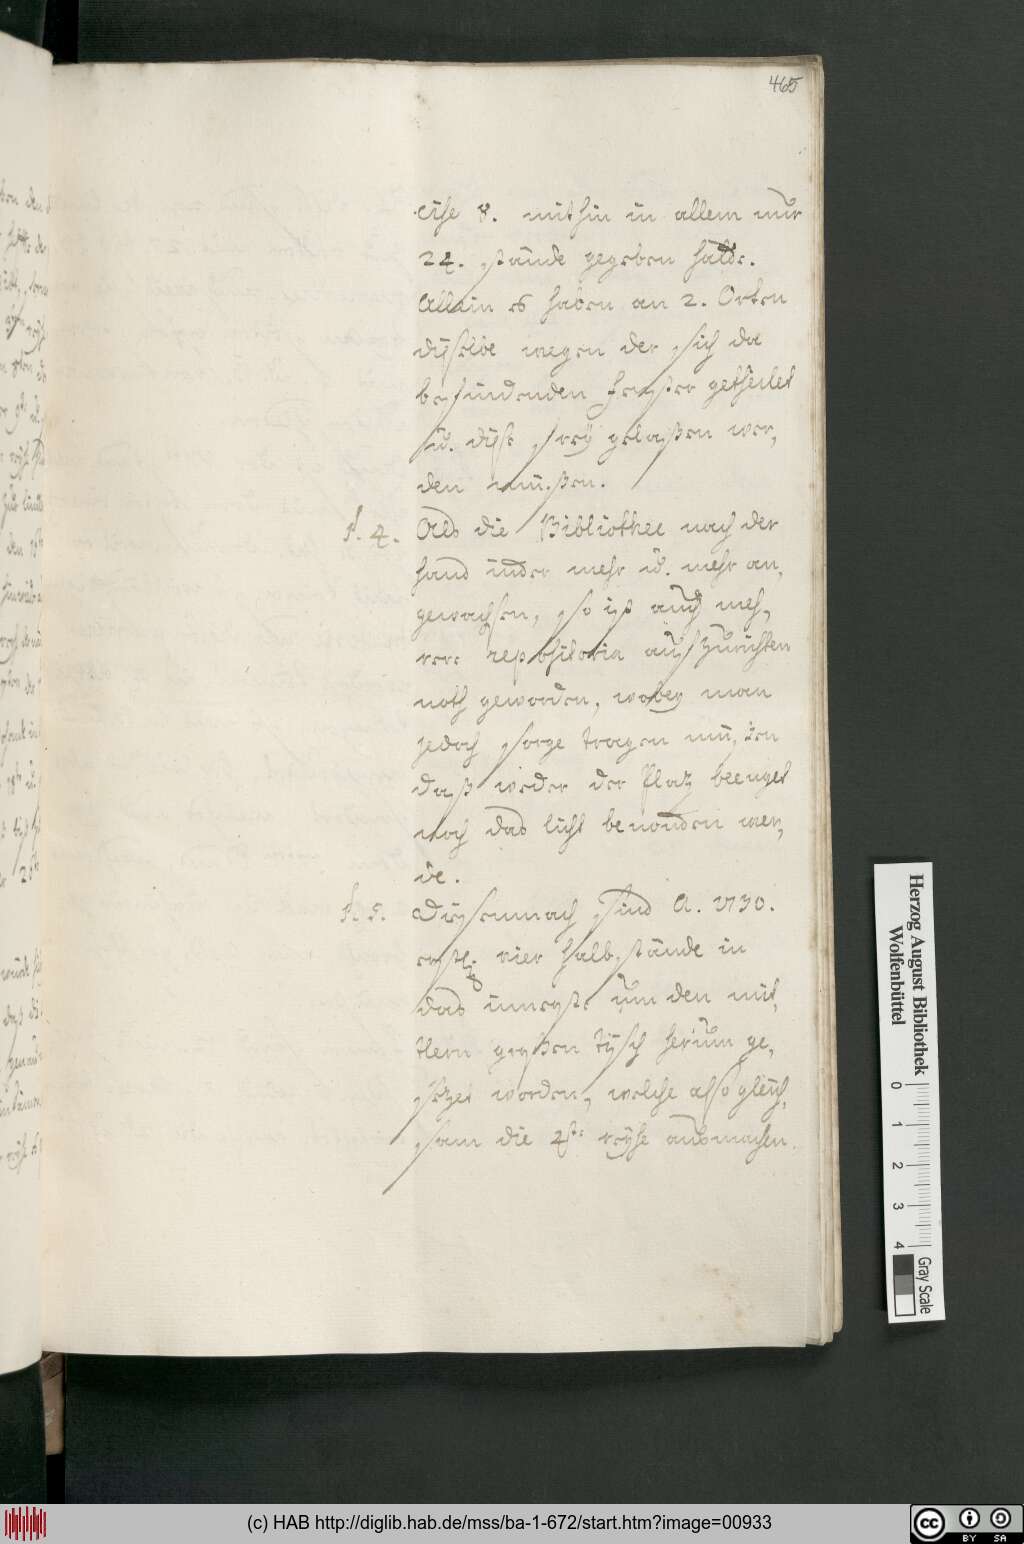 465
eihe 8. mithin in allem nur
24. stände gegeben hätte.
Allein es haben an 2. Orten
dieselbe wegen der sich da
befindenden fenster getheilet
u. diese frey gelaßen wer,
den müßen.
§. 4. Als die Bibliothec nach der
hand immer mehr u. mehr an,
gewachsen, so ist auch meh,
rere repositoria aufzurichten
noth geworden, wobey man
jedoch sorge tragen müßen
daß weder der Plaz beenget
noch das licht benommen wer,
de.
§. 5. Diesemnach sind A. 1730.
erstl. vier halb stände in
das innerste um den mit,
tlern großen tisch herum ge,
setzet worden, welche also gleich,
sam die 2te reyhe ausmachen.
Herzog August Bibliothek
Wolfenbüttel
0 1 2 3 4
Gray Scale
(c) HAB http://diglib.hab.de/mss/ba-1-672/start.htm?image=00933
cc BY SA